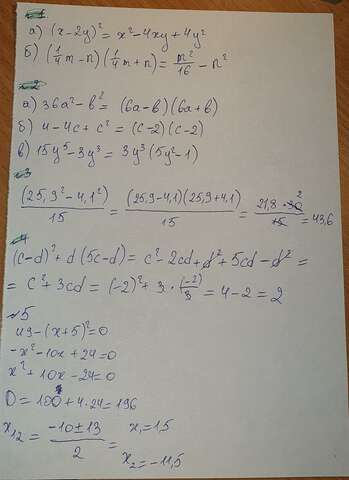 №1
а) (x-2y)² = x²-4xy+4y²
б) (1/4m-n)(1/4m+n) = m²/16 - n²
№2
а) 36a²-b² = (6a-b)(6a+b)
б) 4-4c+c² = (c-2)(c-2)
в) 15y⁵-3y³ = 3y³(5y²-1)
№3
(25,9²-4,1²)/15 = (25,9-4,1)(25,9+4,1)/15 = 21,8·30²/15 = 43,6
№4
(c-d)²+d(5c-d) = c²-2cd+d²+5cd-d² =
= c²+3cd = (-2)²+3·(-2)/3 = 4-2 = 2
№5
49-(x+5)²=0
-x²-10x+24=0
x²+10x-24=0
D = 100+4·24=196
x₁₂ = (-10±13)/2 = x₁=1,5
x₂=-11,5